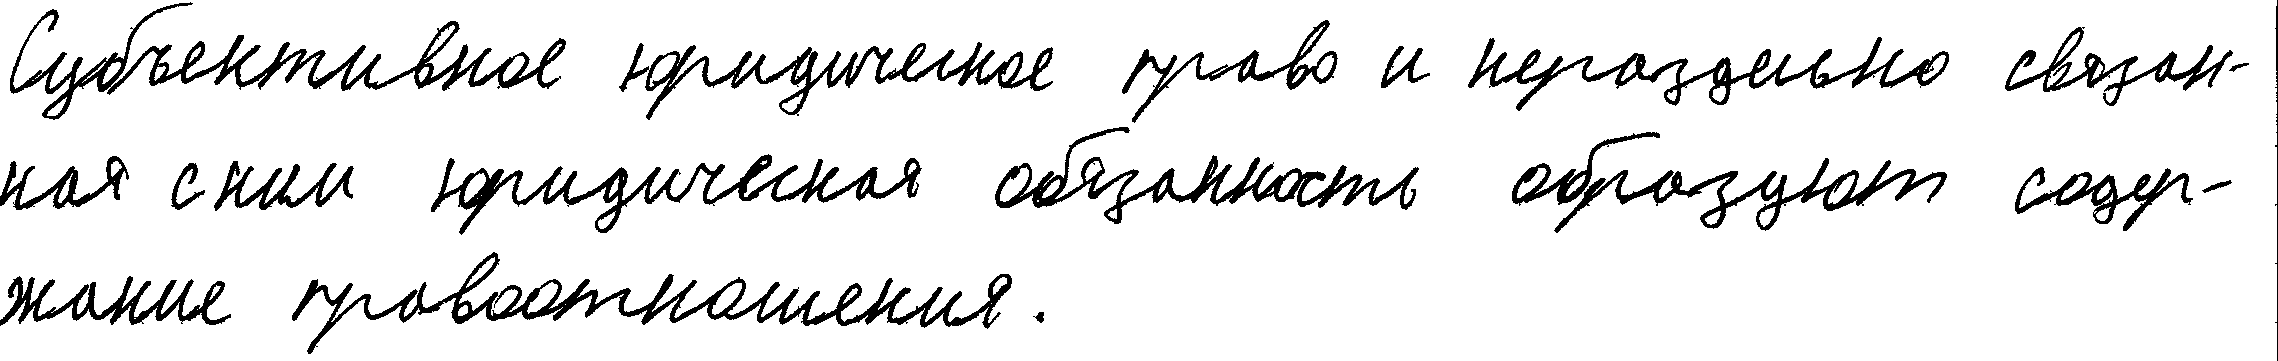 Субъективное юридическое право и нераздельно связан-
ная с ним юридическая обязанность образуют содер-
жание правоотношения.